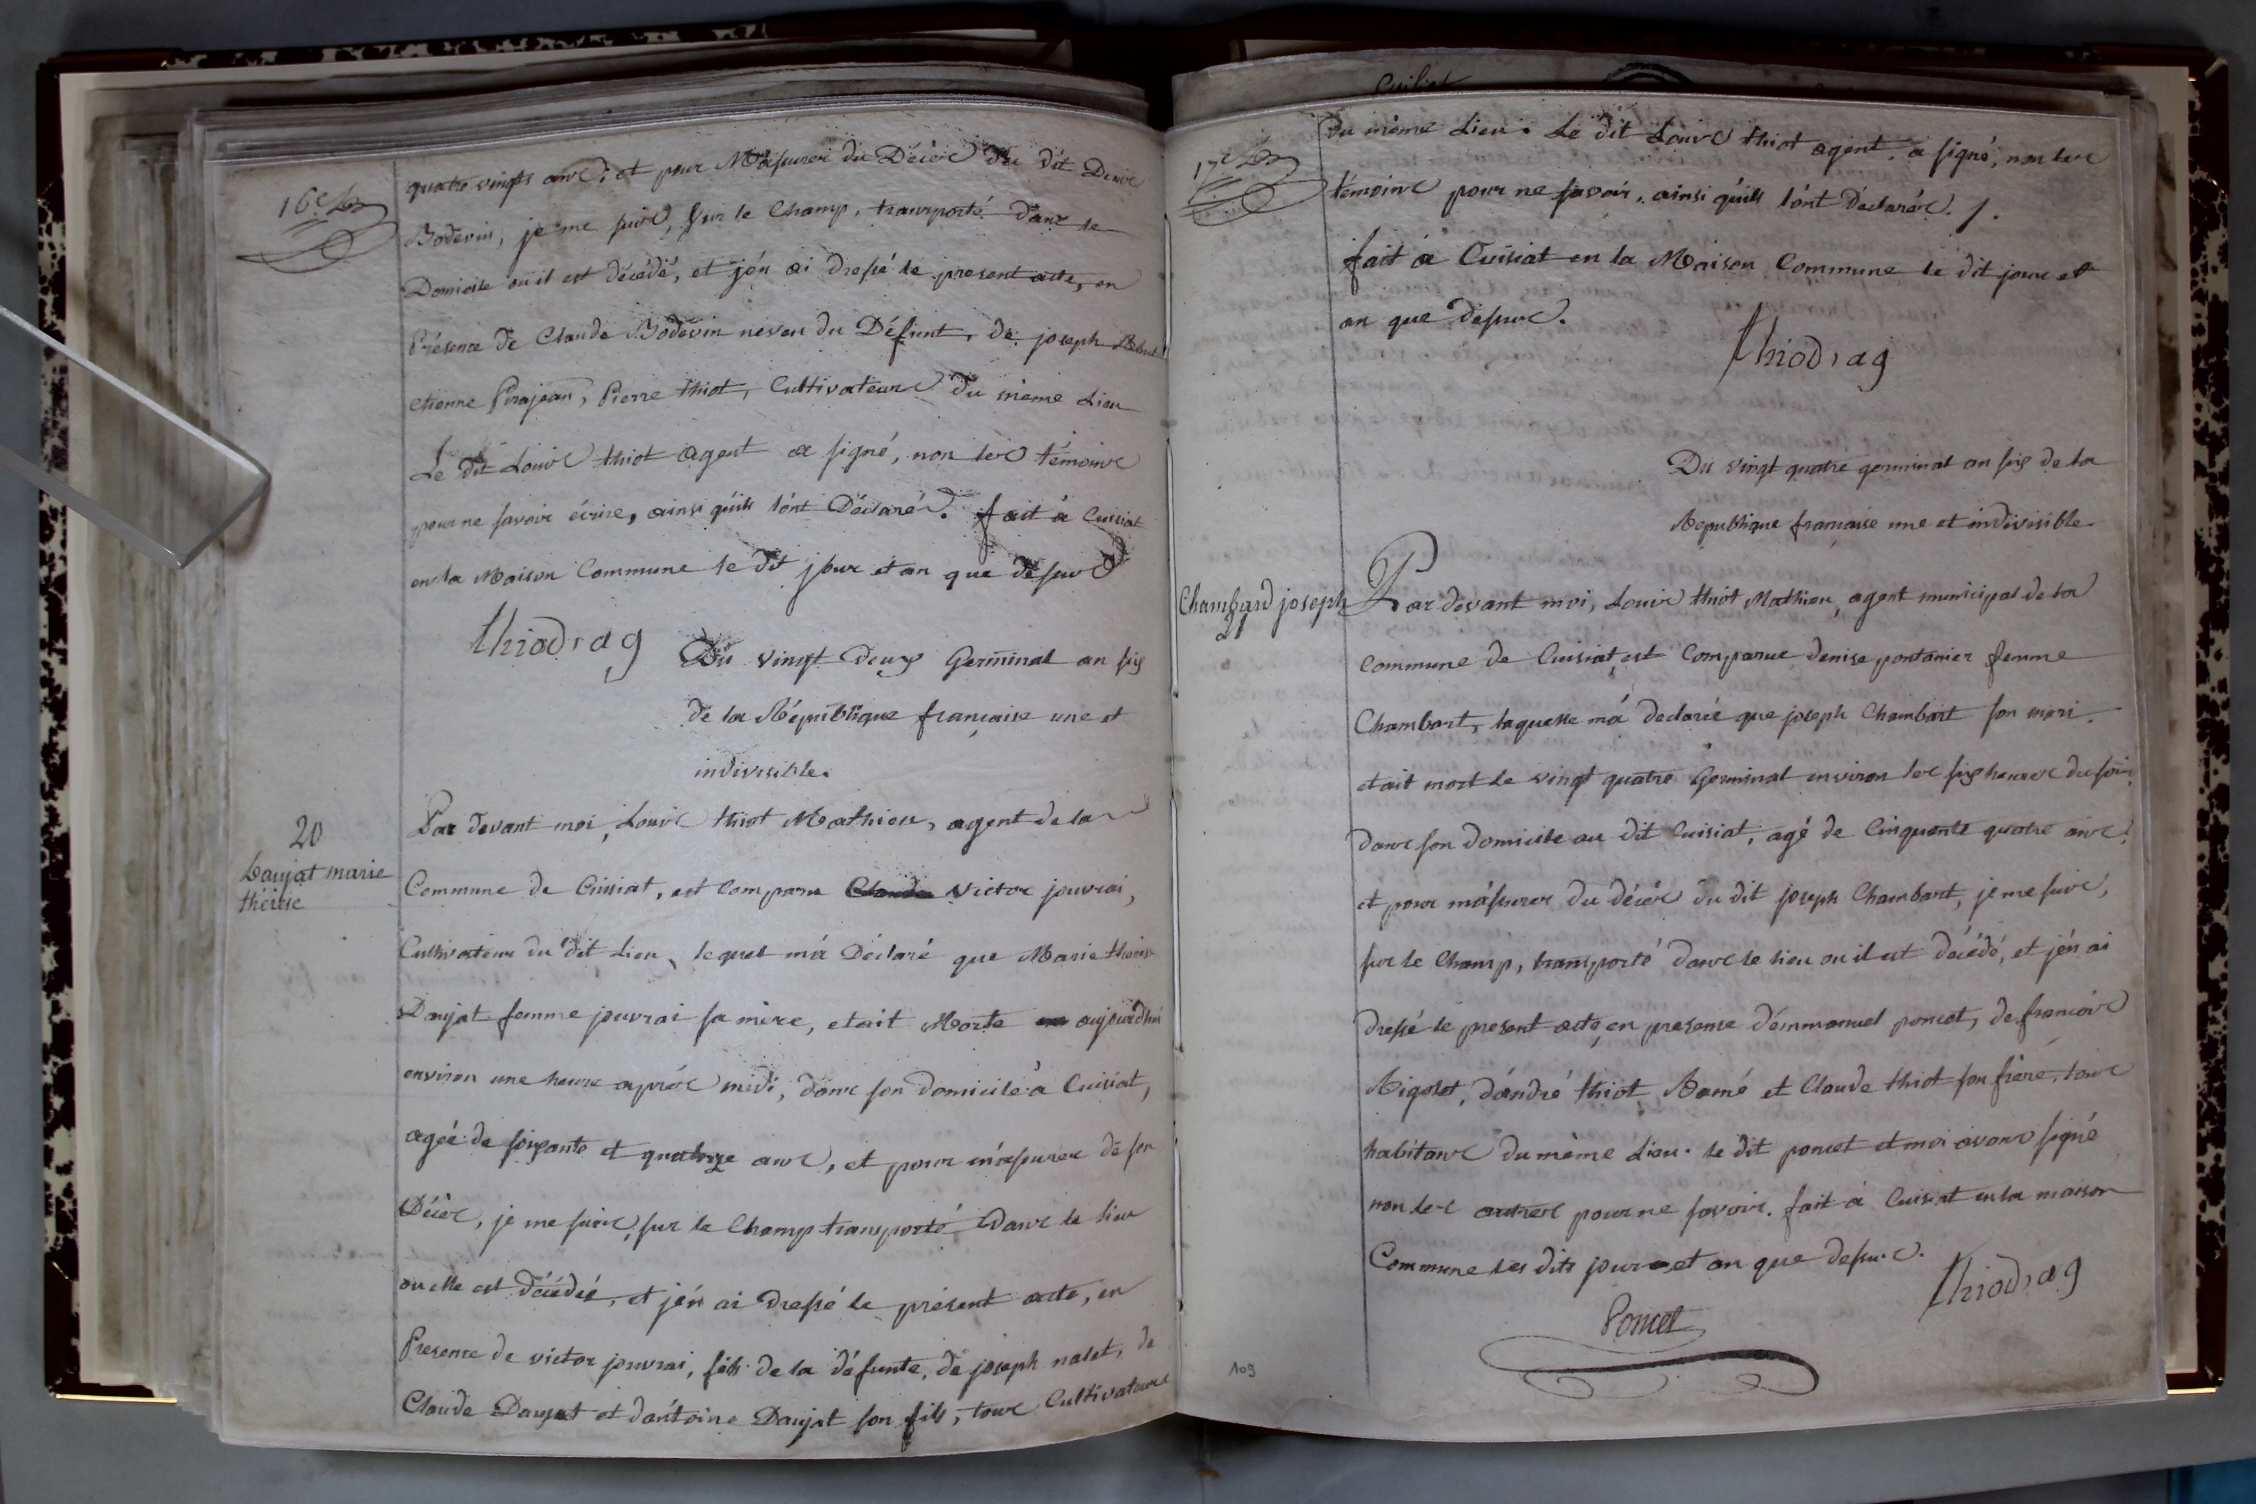 16e
quatre vingts ans; et pour M'assurer du Décès du dit Denis
Bodevin, je me suis, sur le Champ, transporté dans le
Domicile où il est décédé, et j'én ai dressé le present acte, en
Présence de Claude Bodevin neveu du Défunt, de joseph
etienne Pirajean, Pierre thiot, Cultivateurs du même Lieu
Le dit Louis thiot agent a signé, non les témoins
pour ne savoir écrire, ainsi qu'ils l'ónt Déclarés. fait à Cuisiat
en la Maison Commune le dit jour et an que dessus
thiod, ag
Du vingt deux Germinal an six
de la République française une et
indivisible.
20
Daujat marie
thérèse
Par devant moi, Louis thiot Mathieu, agent de la
Commune de Cuisiat, est comparu Claude Victor jouvrai,
Cultivateur du dit Lieu, lequel m'á Déclaré que Marie therese
Daujat femme jouvrai sa mère, etait Morte aujourd'hui
environ une heure aprés midi, dans son domicile à Cuisiat,
agée de soixante et quatorze ans, et pour m'assurer de son
Décès, je me suis, sur le Champ transporté Dans le lieu
ou elle est décédée, et j'én ai Dressé le présent acte, en
Presence de victor jouvrai, fils de la défunte, de joseph nalet, de
Claude Daujat et d'antoine Daujat son fils, tous Cultivateurs
17e
du même Lieu. Le dit Louis thiot agent, a signé, non les
témoins pour ne savoir, ainsi qu'ils l'ónt Déclarés. /.
fait à Cuisiat en la Maison Commune le dit jour et
an que dessus.
thiod, ag
Du vingt quatre germinal an six de la
Republique française une et indivisible
Chambard joseph
Par devant moi, Louis thiot Mathieu, agent municipal de la
Commune de Cuisiat, est Comparue denise pontanier femme
Chambart, laquelle m'á declarée que joseph Chambart son mari
etait mort Le vingt quatre Germinal environ les six heures du soir
dans son domicile au dit Cuisiat, agé de Cinquante quatre ans;
et pour m'ássurer du décès du dit joseph Chambart, je me suis,
sur le Champ, transporté dans le lieu ou il est décédé, et j'én ai
dressé le present acte, en presence d'émmanuel poncet, de françois
Rigolet, d'ándré thiot Ramé et Claude thiot son frère, tous
habitans du même Lieu. le dit poncet et moi avons signé
non les autres pour ne savoir. fait à Cuisiat en la maison
Commune les dits jours et an que dessus.
thiod, ag
Poncet
109